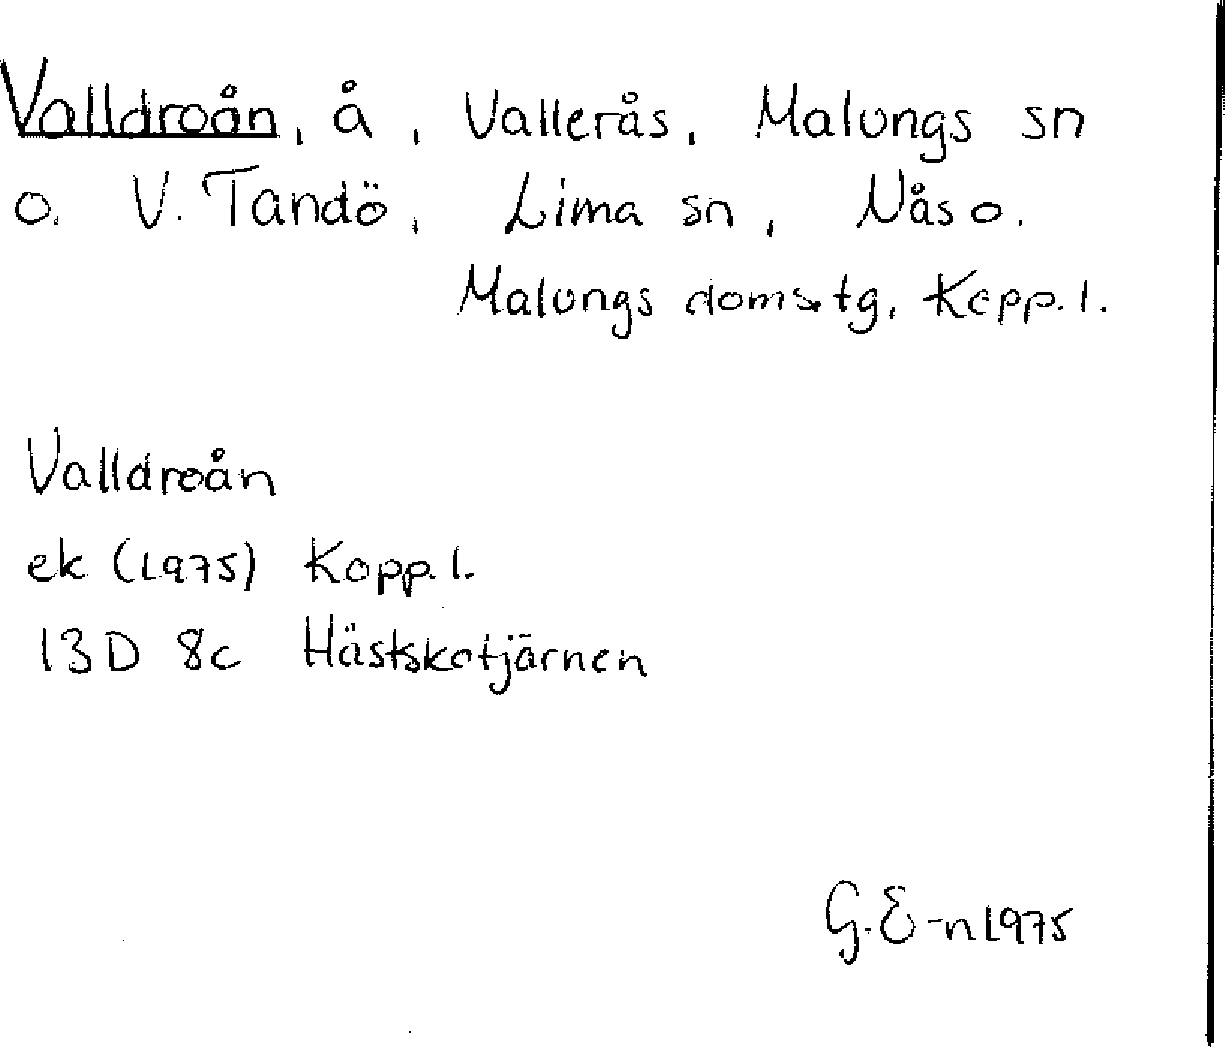 Valldroån, å, Vallerås, Malungs sn
o. V. Tandö, Lima sn, Nås o.
Malungs domstg, Kopp. l.
Valldroån
ek (1975) Kopp. l.
13D 8c Hästskotjärnen
G. E-n 1975